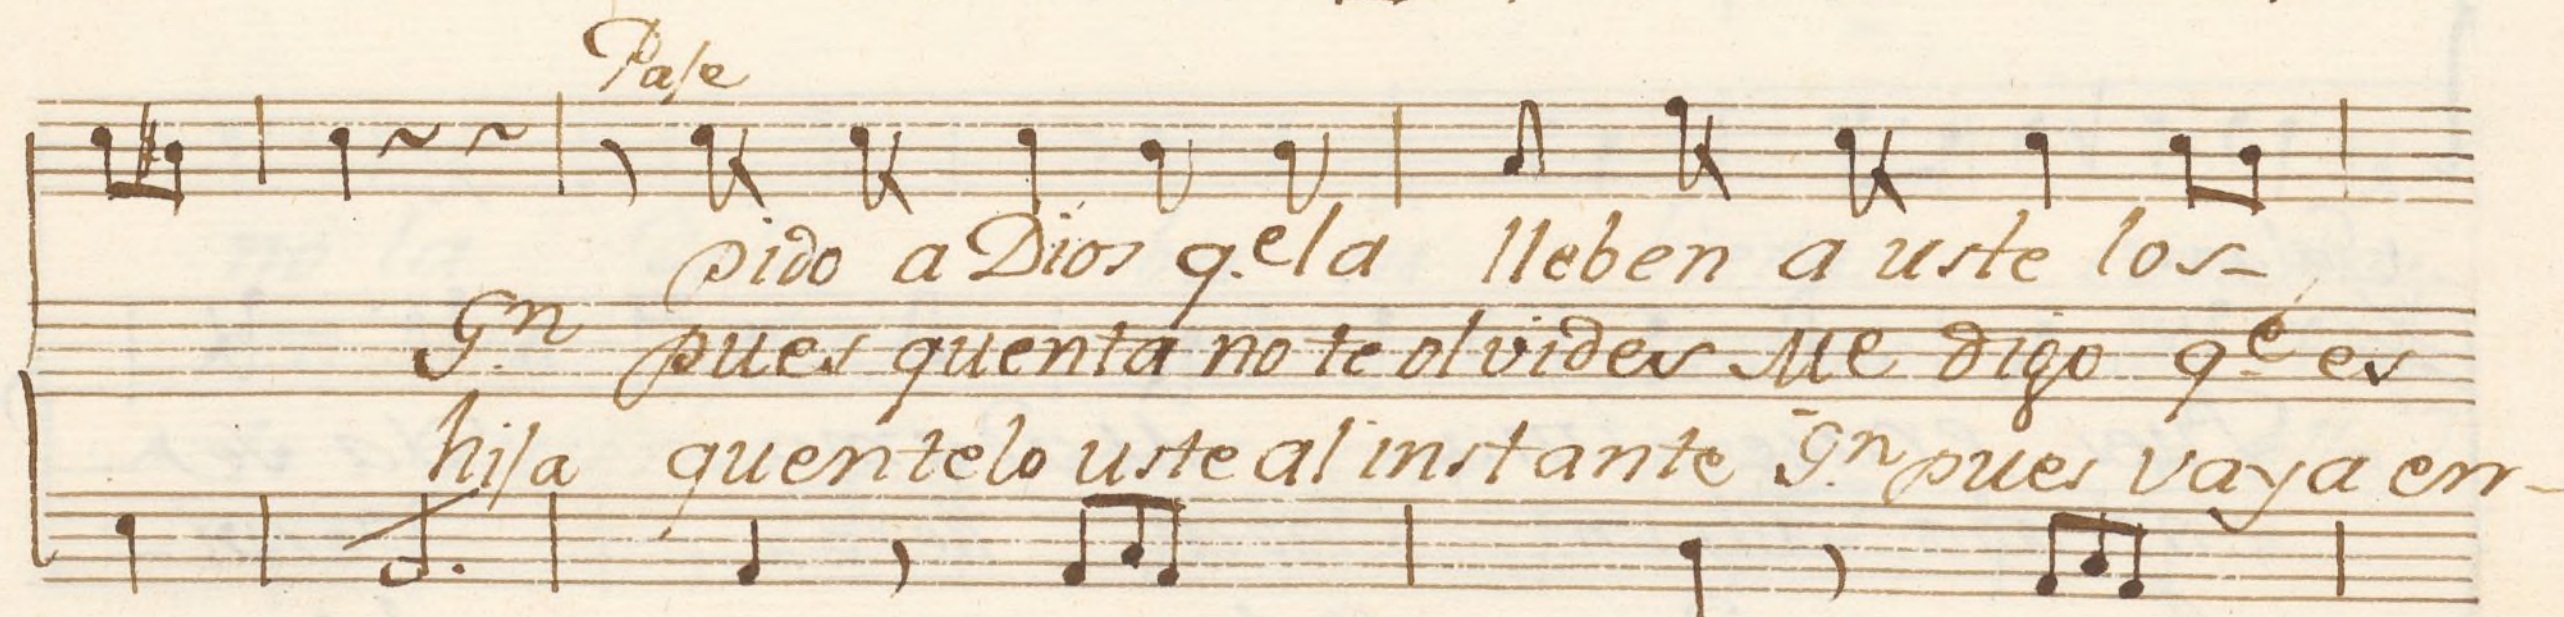 Paje
pido a Dios q.e la lleben a uste los-
Gn pues quenta no te olvides Me digo q.e es
hija quentelo uste al instante Gn pues vaya en-